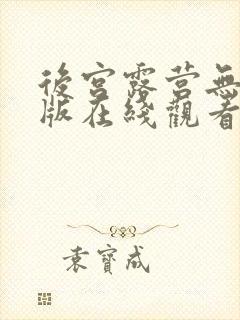 後宮露营無
版在綫觀看
袁寶成